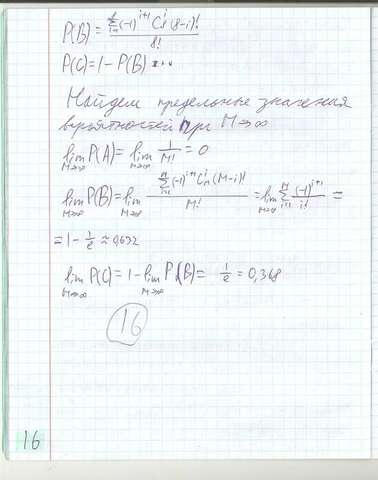 P(B) = \frac{\sum_{i=1}^{8} (-1)^{i+1} C_8^i (8-i)!}{8!}
P(C) = 1 - P(B)
Найдем предельные значения
вероятностей при M→∞
\lim_{M→∞} P(A) = \lim_{M→∞} \frac{1}{M!} = 0
\lim_{M→∞} P(B) = \lim_{M→∞} \frac{\sum_{i=1}^{M} (-1)^{i+1} C_M^i (M-i)!}{M!} = \lim_{M→∞} \sum_{i=1}^{M} \frac{(-1)^{i+1}}{i!} =
= 1 - \frac{1}{e} ≈ 0,632
\lim_{M→∞} P(C) = 1 - \lim_{M→∞} P(B) = \frac{1}{e} = 0,368
16
16